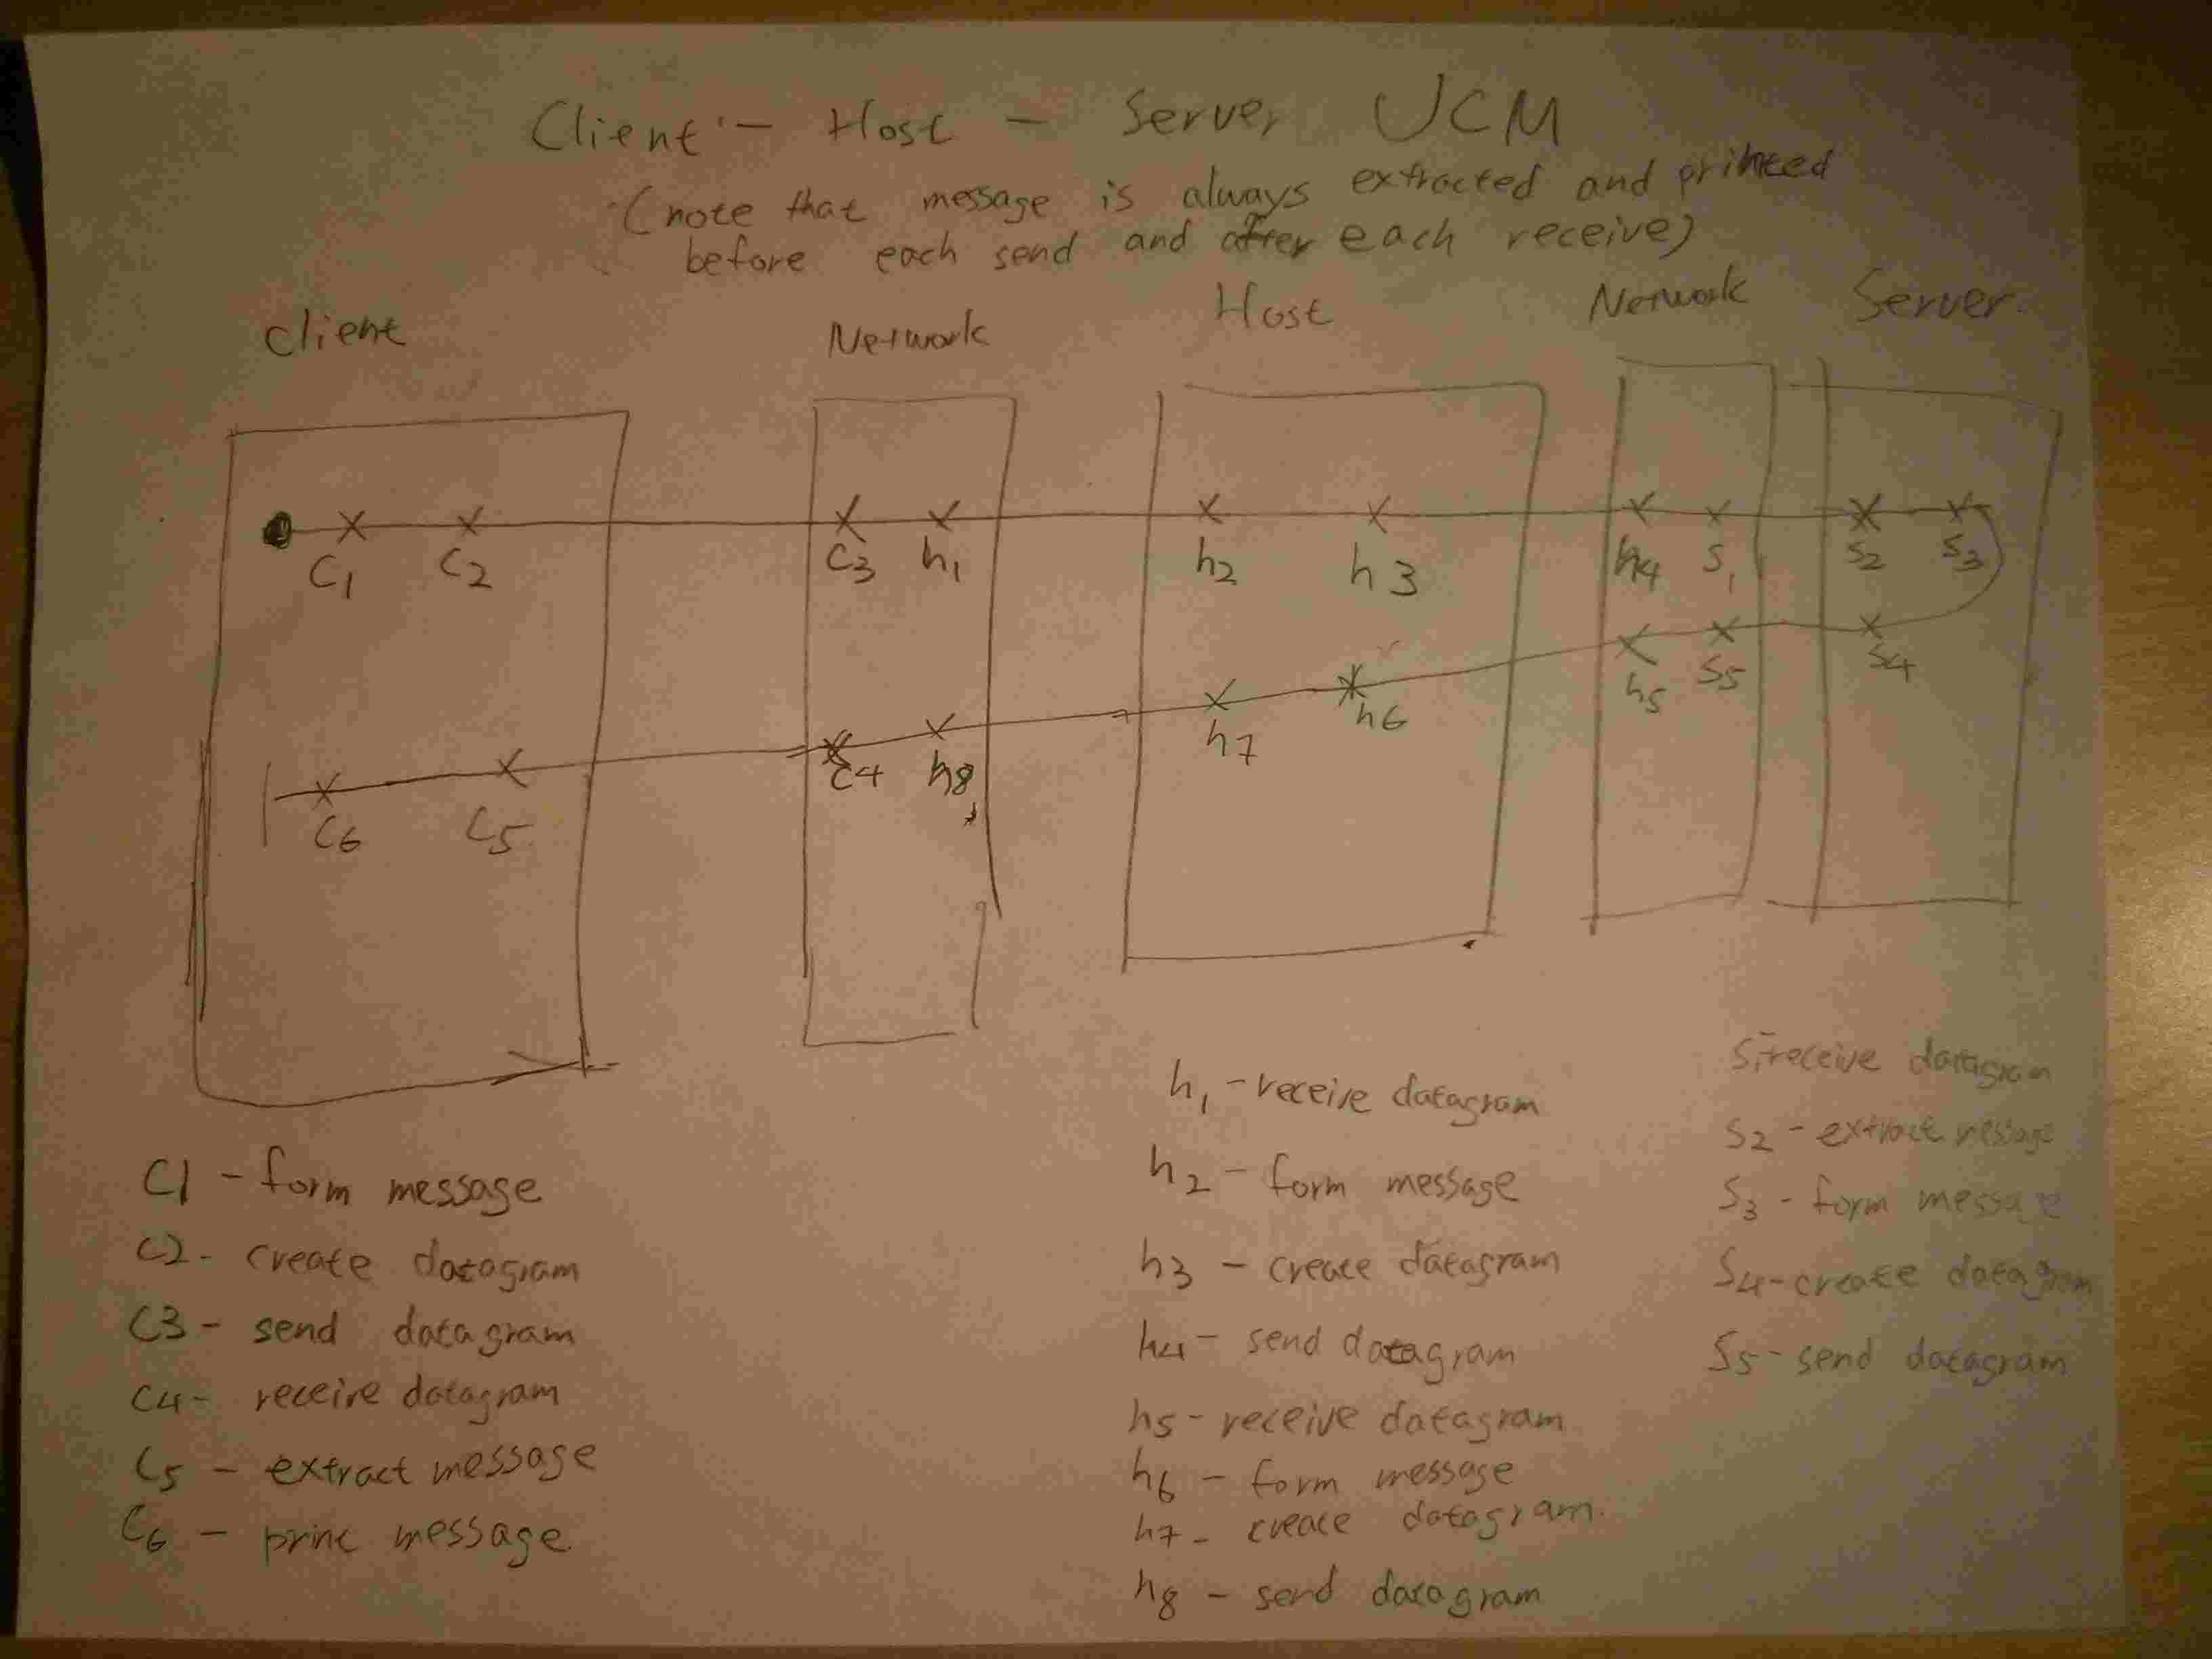 Client - Host - Server UCM
(note that message is always extracted and printed
before each send and after each receive)
Client
Network
Host
Network
Server
C1 C2 C3 h1 h2 h3 h4 S1 S2 S3
C6 C5 C4 h8 h7 h6 h5 S5 S4
C1 - form message
C2 - create datagram
C3 - send datagram
C4 - receive datagram
C5 - extract message
C6 - print message
h1 - receive datagram
h2 - form message
h3 - create datagram
h4 - send datagram
h5 - receive datagram
h6 - form message
h7 - create datagram
h8 - send datagram
S1 - receive datagram
S2 - extract message
S3 - form message
S4 - create datagram
S5 - send datagram